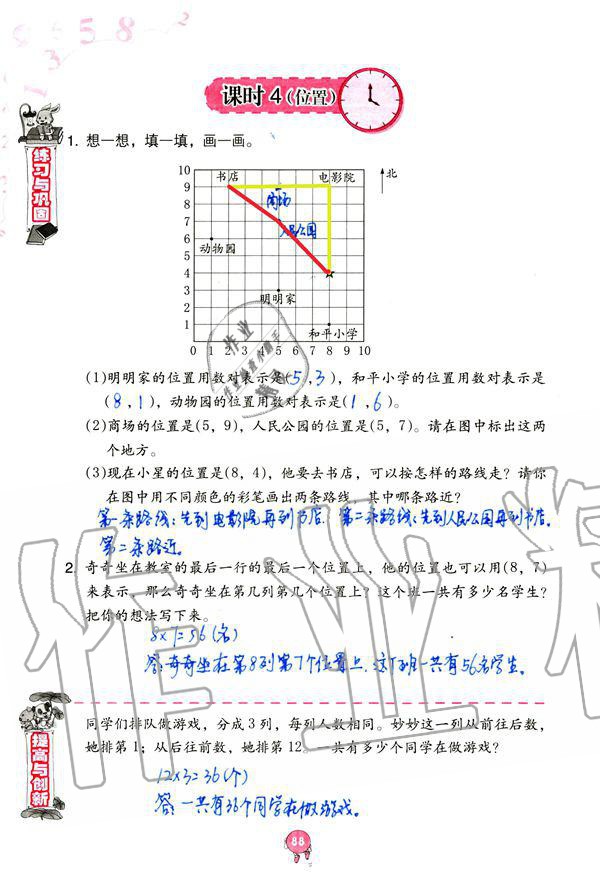 课时4(位置)
练习与巩固
1. 想一想，填一填，画一画。
书店 电影院 北
商场
人民公园
动物园
明明家
和平小学
10
9
8
7
6
5
4
3
2
1
0 1 2 3 4 5 6 7 8 9 10
(1)明明家的位置用数对表示是(5,3)，和平小学的位置用数对表示是
(8,1)，动物园的位置用数对表示是(1,6)。
(2)商场的位置是(5，9)，人民公园的位置是(5，7)。请在图中标出这两
个地方。
(3)现在小星的位置是(8，4)，他要去书店，可以按怎样的路线走？请你
在图中用不同颜色的彩笔画出两条路线，其中哪条路近？
第一条路线：先到电影院再到书店. 第二条路线：先到人民公园再到书店.
第二条路近。
2. 奇奇坐在教室的最后一行的最后一个位置上，他的位置也可以用(8，7)
来表示，那么奇奇坐在第几列第几个位置上？这个班一共有多少名学生？
把你的想法写下来。
8×7=56(名)
答：奇奇坐在第8列第7个位置上，这个班一共有56名学生。
提高与创新
同学们排队做游戏，分成3列，每列人数相同。妙妙这一列从前往后数，
她排第1；从后往前数，她排第12。一共有多少个同学在做游戏？
12×3=36(个)
答：一共有36个同学在做游戏。
88
作业